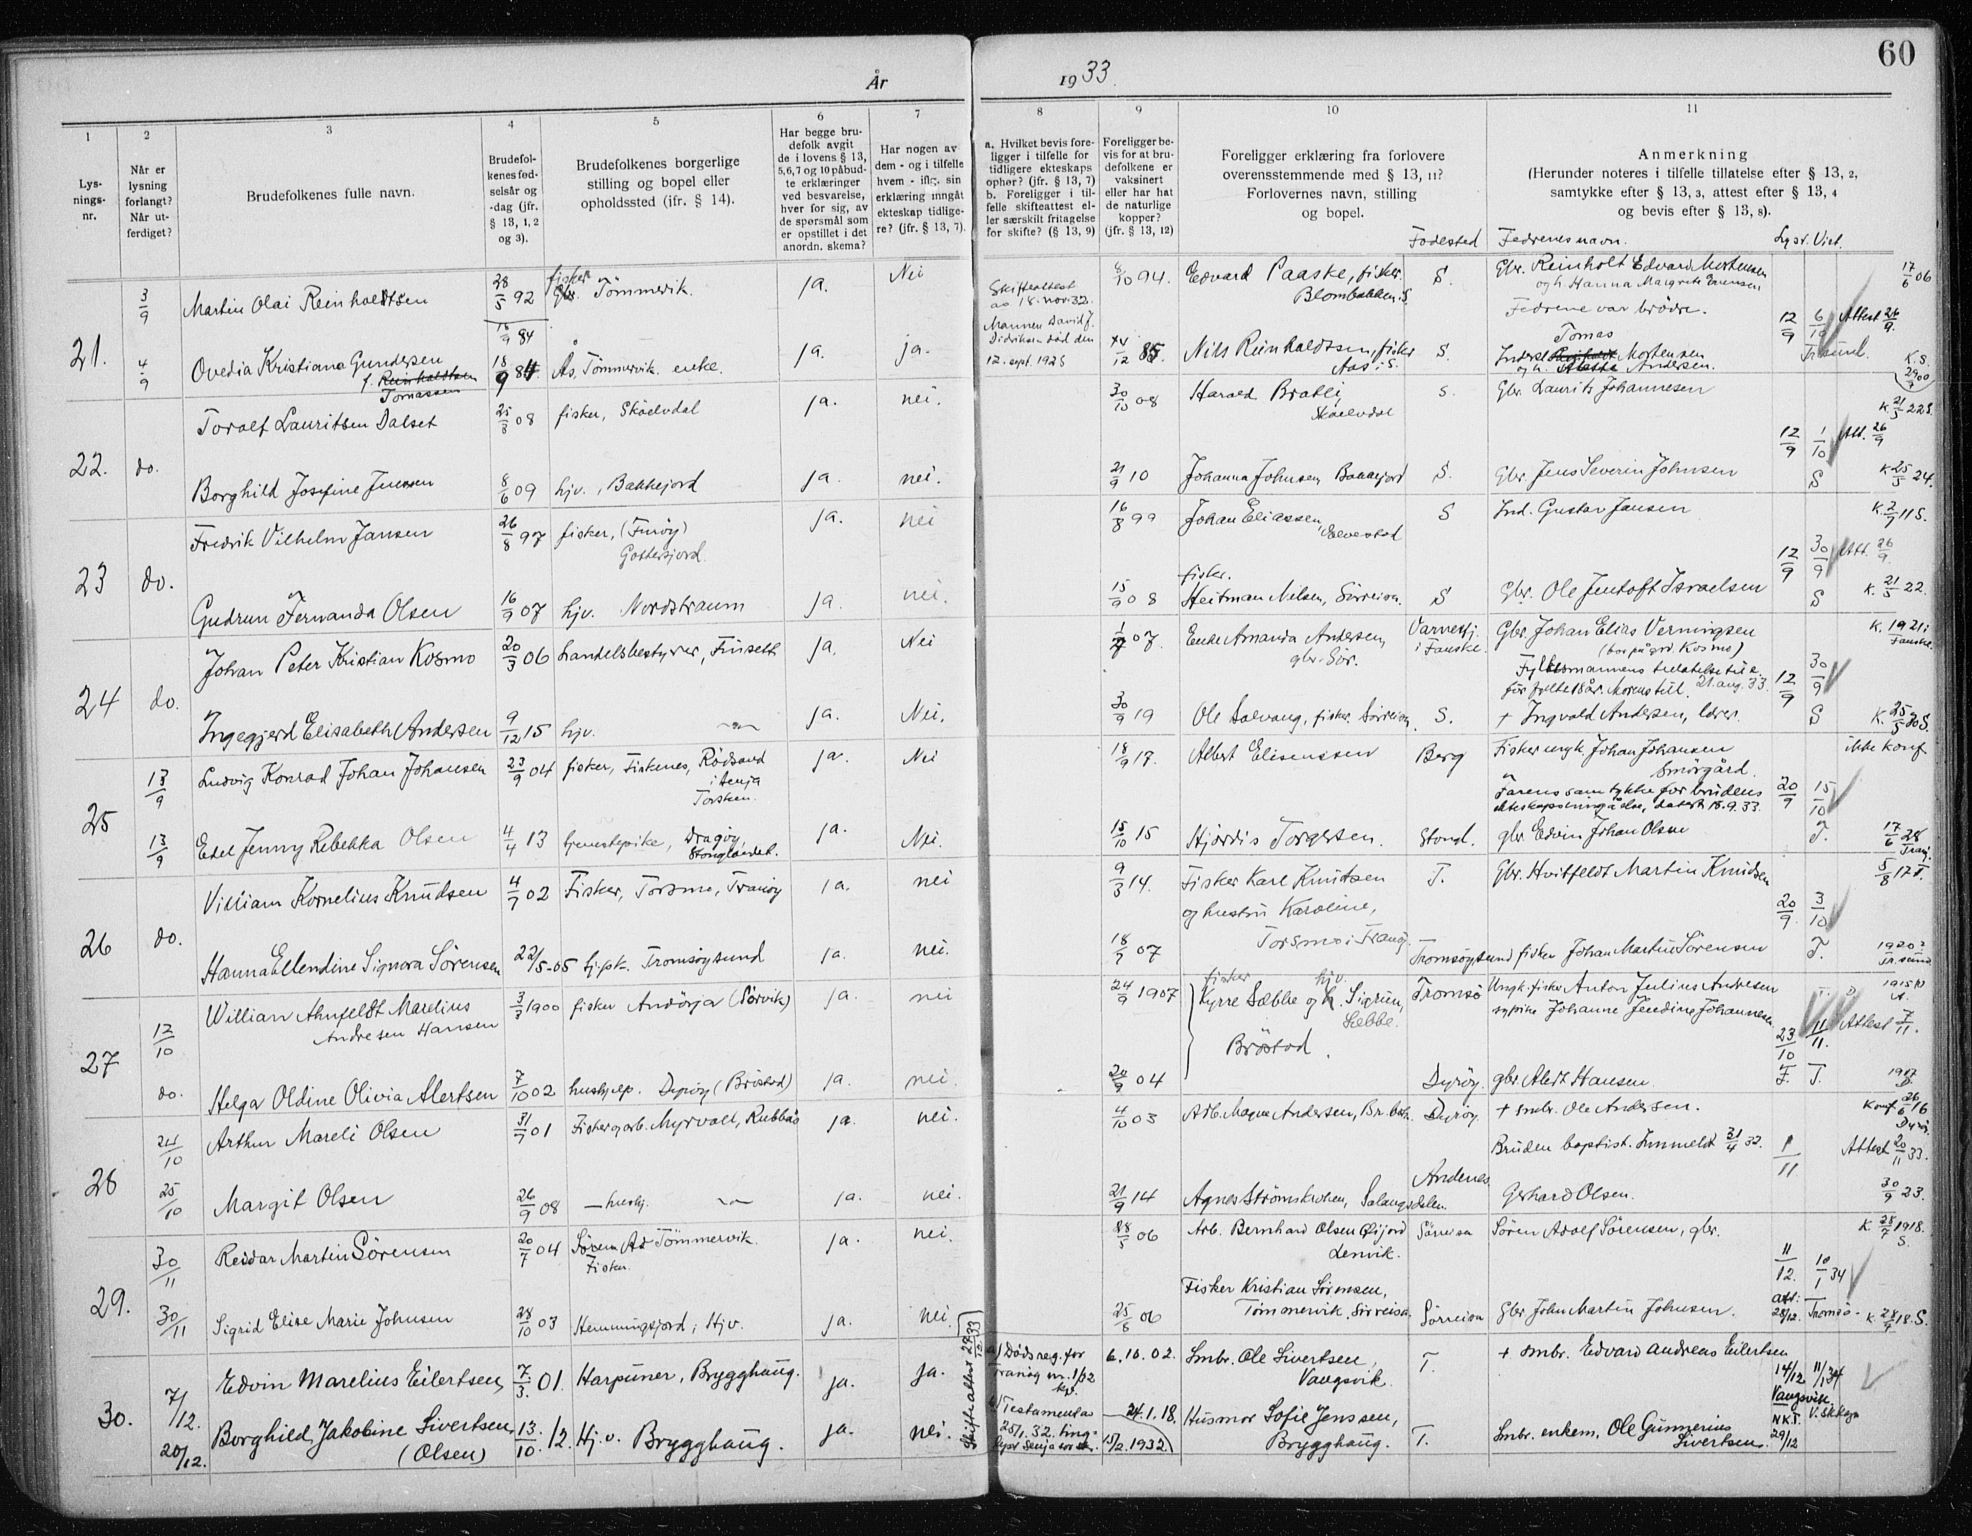 60
År 1933.
1
2
3
4
5
6
7
8
9
10
11
Lys-
nings-
nr.
Når er
lysning
forlangt?
Når ut-
ferdiget?
Brudefolkenes fulle navn.
Brudefol-
kenes fød-
selsår og
-dag (jfr.
§ 13, 1, 2
og 3).
Brudefolkenes borgerlige
stilling og bopel eller
opholdssted (ifr. § 14).
Har begge bru-
defolk avgit
de i lovens § 13,
5, 6, 7 og 10 påbud-
te erklæringer
ved besvarelse,
hver for sig, av
de spørsmål som
er opstillet i det
anordn. skema?
Har nogen av
dem - og i tilfelle
hvem - iflg. sin
erklæring inngåt
ekteskap tidlige-
re? (jfr. § 13, 7).
a. Hvilket bevis fore-
ligger i tilfelle for
tidligere ekteskaps
ophør? (jfr. § 13, 7)
b. Foreligger i til-
felle skifteattest el-
ler særskilt fritagelse
for skifte? (§ 13, 9)
Foreligger be-
vis for at bru-
defolkene er
vaksinert
eller har hat
de naturlige
kopper?
(jfr. § 13, 12)
Foreligger erklæring fra forlovere
overensstemmende med § 13, 11?
Forlovernes navn, stilling
og bopel.
Fødested
Anmerkning
(Herunder noteres i tilfelle tillatelse efter § 13, 2,
samtykke efter § 13, 3, attest efter § 13, 4
og bevis efter § 13, 8).
Fedrenes navn. Lyst. Viet.
21. 3/9 Martin Olai Reinholdtsen 28/5 92 fisker Gbr. Tömmervik. ja. Nei
Skifteattest av 18. nov. 32. 8/10 94. Edvard Paaske, fisker Blombakken. S. S. Gbr. Reinholt Edvard Mortensen
og h. Hanna Margrete 17/6 06
Fedrene var brödre. 12/9 6/10 Attest 26/9.
4/9 Ovedia Kristiane Gundersen 16/9 84 18/9 84. Ås, Tömmervik. enke. ja. ja.
f. Reinholdtsen
Tomassen
Mannen David J.
Didriksen död den
12. sept. 1928 Nils Reinholdtsen, fisker S. Aas i S.
Tomas
Inderst Mortensen
og h. Andersen.
22. do. Toralf Lauritsen Dalset 25/8 08 fisker, Sköelvdal ja. nei.
30/10 08 Harald Bratli, Sköelvdal S. Gbr. Laurits Johannesen K. 21/5 22 S.
12/9 1/10 Att. 26/9
Borghild Josefine Jensen 8/6 09 hjv., Bakkejord ja. nei.
21/9 10 Johanna Johnsen, Bakkejord S. Gbr. Jens Severin Johnsen S K 25/5 24.
23 do. Fredrik Vilhelm Jansen 26/8 97 fisker, (Finöy) Gottesfjord. ja. nei
16/8 99 Johan Eliassen, S Ind. Gustav Jansen K. 2/7 11 S.
12/9 30/9 Att. 26/9.
Gudrun Fernanda Olsen 16/9 07 hjv. Nordstraum ja. nei.
15/9 08 fisker. Heitman Nilsen, Sörreisa. S Gbr. Ole Jentoft Israelsen S K. 21/5 22.
24 do. Johan Peter Kristian Kosmo 20/3 06 Handelsbestyrer, Finset ja. Nei
07. Enke Amanda Andersen, gbr. Sör. Varnesfj. i Fauske. Gbr. Johan Elias Verningsen
(bor på grd. Kosmo) K. 1921 i Fauske.
Fylkesmannens tillatelse til e.
för fylte 18 år. Morens till. 21. aug. 33. 12/9 30/9
Ingegjerd Elisabeth Andersen 9/12 15 hjv. —"— ja. Nei.
30/9 19 Ole Solvang, fisker Sörreisa S. + Ingvald Andersen, lærer. S K. 25/5 30 S.
25 13/9 Ludvig Konrad Johan Johansen 23/9 04 fisker, Fiskenes, Rödsand i Senja Torsken. ja. Nei
18/9 17. Albert Elisenssen Berg Fisker ungk. Johan Johansen Smörgård. ikke konf.
Farens samtykke for brudens
ekteskapsinngåelse, datert 18. 9. 33. 20/9 15/10
13/9 Edel Jenny Rebekka Olsen 4/4 13 tjenestepike, Dragöy, Stonglandet. ja. Nei.
15/10 15 Hjördis Torgersen Stongl. gbr. Edvin Johan Olsen T. 17/6 28 Tranöy
26 do. Villiam Kornelius Knudsen 4/7 02 Fisker, Torsmo, Tranöy ja. nei
9/3 14. Fisker Karl Knutsen
og hustru Karoline,
Torsmo i Tranöy. T. Gbr. Hvitfeldt Martin Knudsen 5/8 17 T.
20/9 3/10
Hanna Ellendine Signora Sörensen 22/5-05 hj.pk. Tromsöysund ja. nei.
18/7 07 Tromsöysund fisker Johan Martin Sörensen T. 1920? Tr.sund
27 12/10 Willian Ahnfeldt Marelius
Andresen Hansen 3/3 1900 fisker Andörja (Sörvik) ja. nei
24/9 1907 fisker hjv.
Syrre Sæbbe og h. Sigrun Sæbbe.
Bröstad. Tromsö Ungk. fisker Anton Julius Andresen
og pike Johanne Jendine Johannesen
23/10 11/11. Attest 7/11.
do. Helga Oldine Olivia Alertsen 7/10 02 hushjelp. Dyröy (Bröstad) ja. nei.
20/9 04 Dyröy. gbr. Alert Hansen. F. T. 1917 D
28 24/10 Arthur Mareli Olsen 31/7 01 Fisker og arb. Myrvoll, Rubbås ja. nei.
4/10 03 Arb. Magne Andersen, Br.botn. Dyröy. + smbr. Ole Andersen. Konf. 26/6 16 Dyröy.
Bruden baptist. Innmeldt 32. 1/11 Attest 20/11 33.
25/10 Margit Olsen 26/9 08 — hushj. —"— ja. nei.
21/9 14 Agnes Strömskroken, Salangsdalen. Andenes Gerhard Olsen. 30/9 23.
29. 30/11 Reidar Martin Sörensen 20/7 04 Tömmervik. Fisker. ja. nei.
28/5 06 Arb. Bernhard Olsen Öijord Lenvik. Sörreisa Sören Adolf Sörensen, gbr. K 28/7 1918. S.
11/12. 10/1 34
Fisker Kristian Sörensen,
Tömmervik, Sörreisa
30/11 Sigrid Elise Marie Johnsen 28/10 03 Hemmingsfjord, Hjv. ja. nei.
25/8 06 Sörreisa Gbr John Martin Johnsen. att: 28/12. Tromsö - K. 28/9 18. S.
30. 7/12. Edvin Marelius Eilertsen 7/3. 01. Harpuner, Brygghaug. ja. ja.
a) Dödsreg. for
Tranöy nr. 1/32 6. 10. 02. Smbr. Ole Sivertsen, Vangsvik. T. + smbr. Edvard Andreas Eilertsen
14/12 11/1 34
Vangsvik
20/12. Borghild Jakobine Sivertsen 13/10. 12. Hj. v. Brygghaug. ja. nei.
(Olsen)
b) Testament av
25/1. 32. ting-
24. 1. 18. Husmor Sofie Jenssen, Brygghaug. T. Smbr. enkem. Ole Gunnerius Sivertsen. N.K.T. 29/12
15/2. 1932.